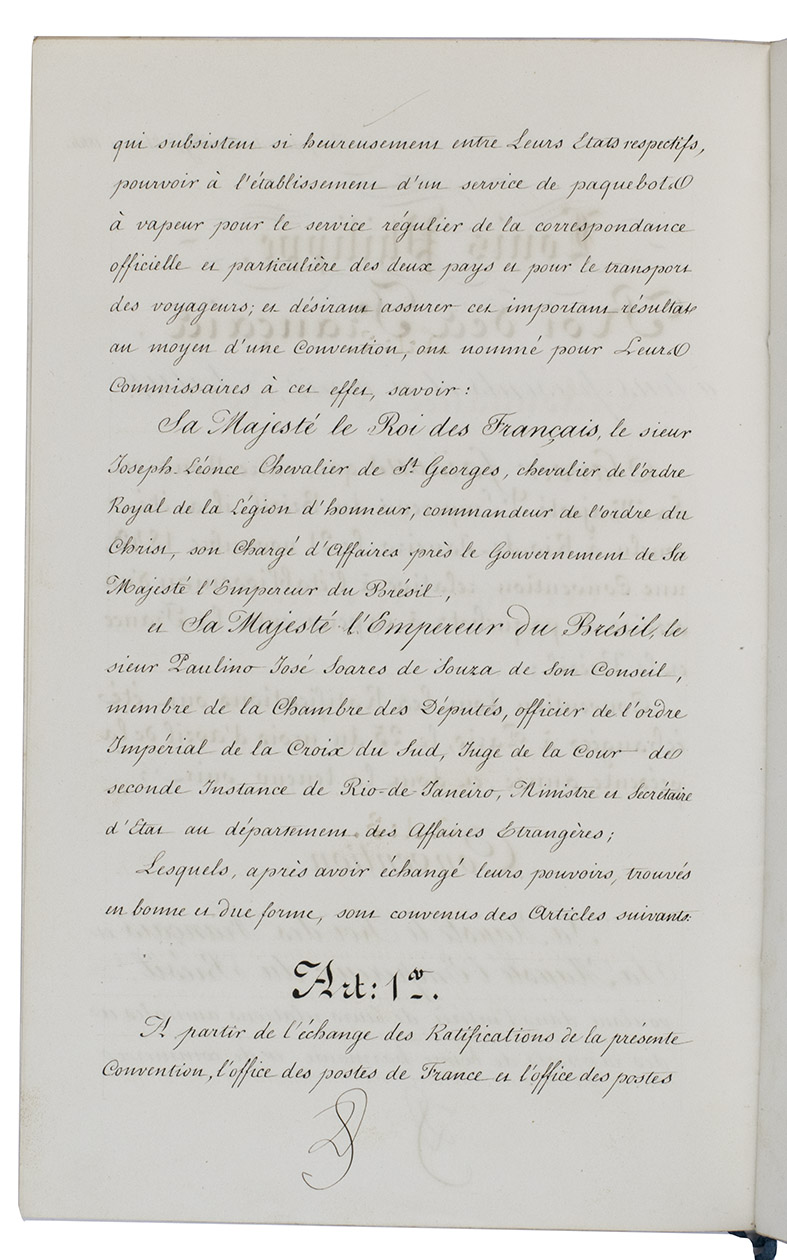 qui subsistent si heureusement entre Leurs Etats respectifs,
pourvoir à l'établissement d'un service de paquebots
à vapeur pour le service régulier de la correspondance
officielle et particulière des deux pays et pour le transport
des voyageurs; et désirant assurer cet important résultat
au moyen d'une Convention, ont nommé pour Leurs
Commissaires à cet effet, savoir:
Sa Majesté le Roi des Français, le sieur
Joseph-Léonce Chevalier de St Georges, chevalier de l'ordre
Royal de la Légion d'honneur, commandeur de l'ordre du
Christ, son Chargé d'Affaires près le Gouvernement de Sa
Majesté l'Empereur du Brésil,
et Sa Majesté l'Empereur du Brésil, le
sieur Paulino José Soares de Souza de Son Conseil,
membre de la Chambre des Députés, officier de l'ordre
Impérial de la Croix du Sud, Juge de la Cour de
seconde Instance de Rio-de-Janeiro, Ministre et Secrétaire
d'Etat au département des Affaires Etrangères;
Lesquels, après avoir échangé leurs pouvoirs, trouvés
en bonne et due forme, sont convenus des Articles suivants:
Art: 1er.
A partir de l'échange des Ratifications de la présente
Convention, l'office des postes de France et l'office des postes